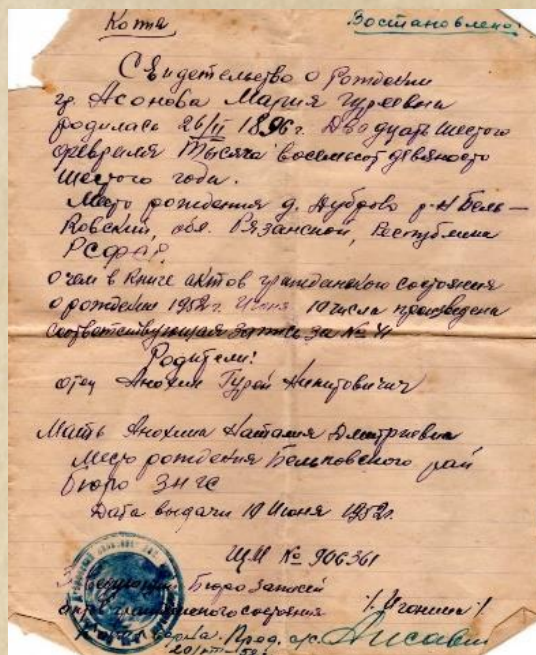 Копия
Востановлено:
Свидетельство о Рождении
гр. Асонова Мария Гуреевна
родилась 26/II 1896 г. Двадцать шестого
февраля тысяча восемьсот девяносто
шестого года.
Место рождения д. Дуброво р-н Бель-
ковский, обл. Рязанской, Республика
РСФСР
о чем в книге актов гражданского состояния
о рождении 1952 г. Июня 10 числа произведена
соответствующая запись за № 41
Родители:
отец Анохин Гурей Никитович
Мать Анохина Наталия Дмитриевна
Место рождения Бельковского рай
бюро ЗАГС
Дата выдачи 10 Июня 1952 г.
ЩМ № 906361
Заведующий Бюро записей
актов гражданского состояния /Агонина/
верна.